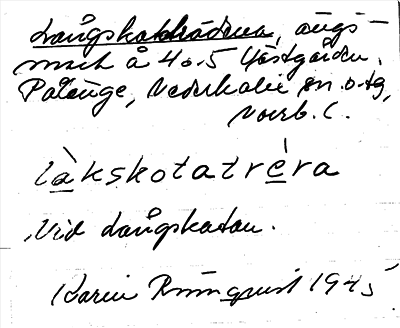 Långskateträdena, ängs-
mark å 4 o. 5 Västgården,
Pålänge, Nederkalix sn. o. tg,
Norrb. l.
làkskotatrèra
Vid Långskatan.
Karin Runnquist 1945